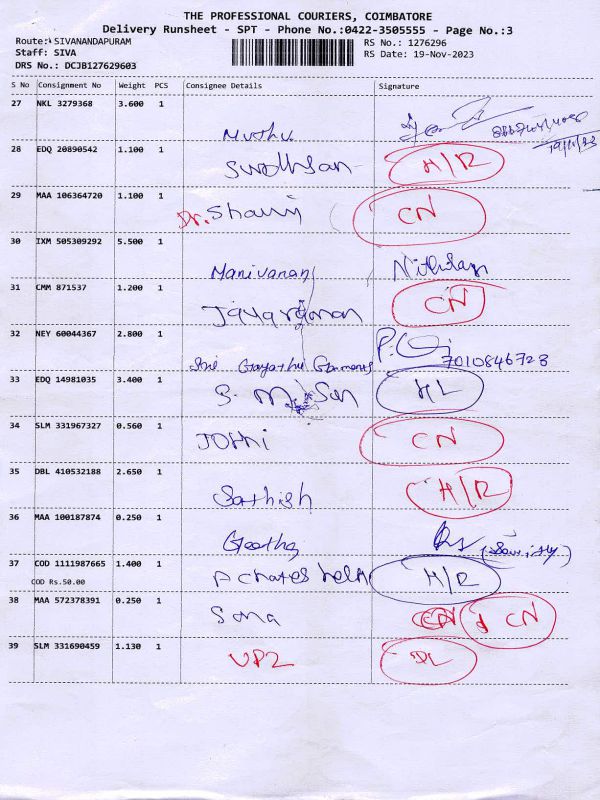 THE PROFESSIONAL COURIERS, COIMBATORE
Delivery Runsheet - SPT - Phone No.:0422-3505555 - Page No.:3
Route: SIVANANDAPURAM RS No.: 1276296
Staff: SIVA RS Date: 19-Nov-2023
DRS No.: DCJB127629603
S No Consignment No Weight PCS Consignee Details Signature
27 NKL 3279368 3.600 1
Muthu 19/11/23
28 EDQ 20890542 1.100 1
H/R
29 MAA 106364720 1.100 1
Dr. CN
30 IXM 505309292 5.500 1
Manivanan
31 CMM 871537 1.200 1
CN
32 NEY 60044367 2.800 1
Sri Gayathri Garments 7010846728
33 EDQ 14981035 3.400 1
HL
34 SLM 331967327 0.560 1
CN
35 DBL 410532188 2.650 1
Sathish H/R
36 MAA 100187874 0.250 1
Geetha
37 COD 1111987665 1.400 1
COD Rs.50.00
H/R
38 MAA 572378391 0.250 1
CN
39 SLM 331690459 1.130 1
DL